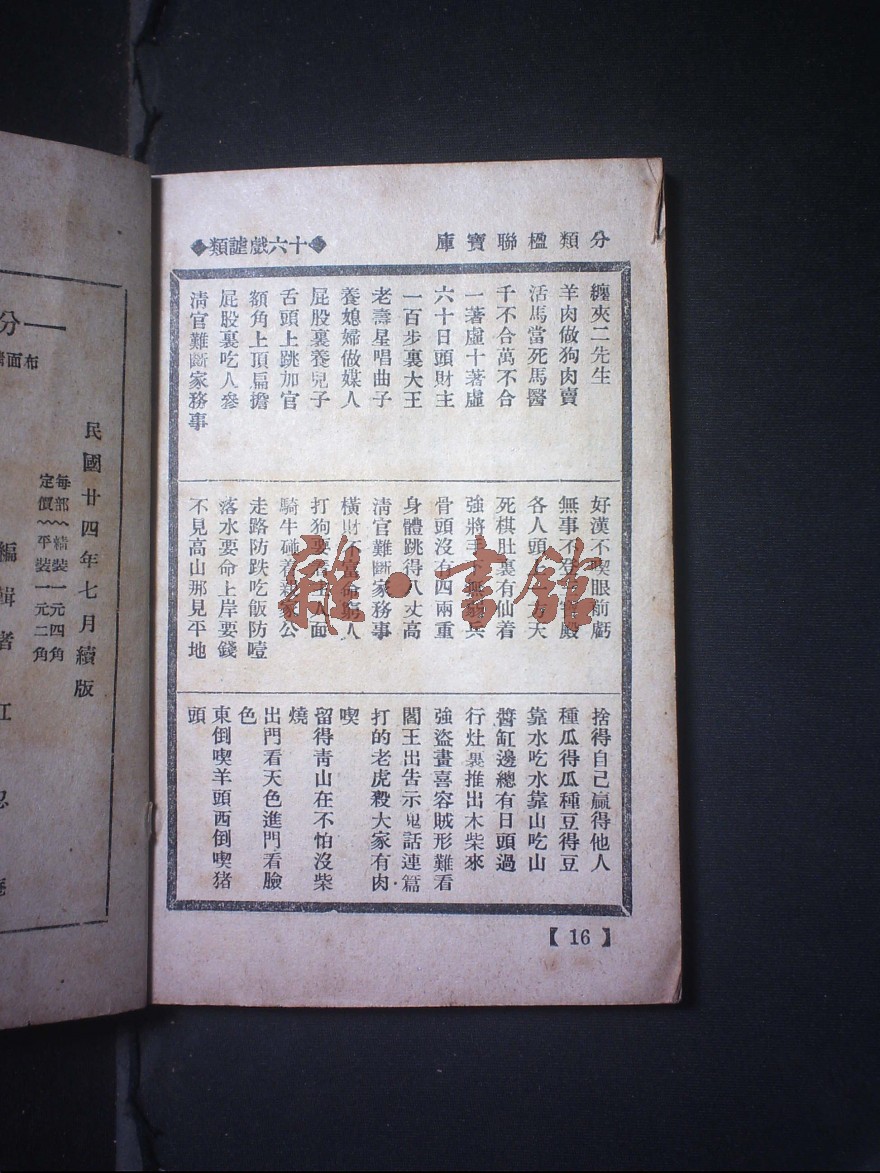 分類楹聯寶庫
◆十六戲謔類◆
纏夾二先生
羊肉做狗肉賣
活馬當死馬醫
千不合萬不合
一著虛十著虛
六十日頭財主
一百步裏大王
老壽星唱曲子
養媳婦做媒人
屁股裏養兒子
舌頭上跳加官
額角上頂扁擔
屁股裏吃人參
淸官難斷家務事
好漢不喫眼前虧
無事不登
各人頭上一方天
死棋肚裏有仙着
強將手下無弱兵
骨頭沒有四兩重
身體跳得八丈高
淸官難斷家務事
橫財不富命窮人
打狗要人面
騎牛碰着親家公
走路防跌吃飯防噎
落水要命上岸要錢
不見高山那見平地
捨得自己贏得他人
種瓜得瓜種豆得豆
靠水吃水靠山吃山
醬缸邊總有日頭過
行灶裏推出木柴來
強盜畫喜容賊形難看
閻王出告示鬼話連篇
打的老虎殺大家有肉
喫
留得靑山在不怕沒柴
燒
出門看天色進門看臉
色
東倒喫羊頭西倒喫猪
頭
【16】
雜·書館
一分
布面
民國廿四年七月續版
每部 精裝一元四角
定價 平裝一元二角
編輯者 江忍菴